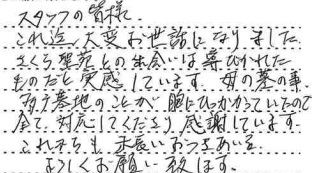 スタッフの皆様
これ迄、大変お世話になりました。
さくら聖苑との出会いは導びかれた
ものだと実感しています。母の墓の事
墓地のことが頭にひっかかっていたので
全て対応してくださり感謝しています。
これからも末長いおつきあいを
よろしくお願い致します。